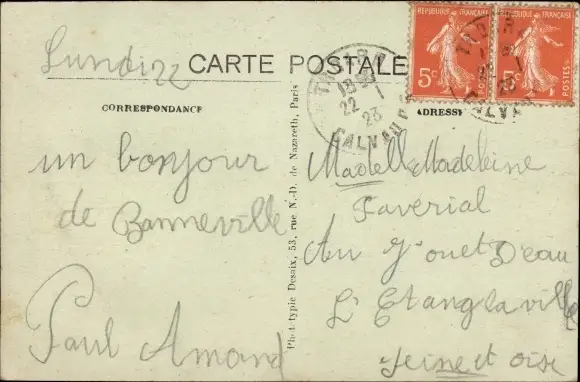 Lundi 22
CARTE POSTALE
CORRESPONDANCE
ADRESSE
RÉPUBLIQUE FRANÇAISE
5c
POSTES
RÉPUBLIQUE FRANÇAISE
5c
POSTES
22 - 1
23
CALVADOS
22
23
CALVADOS
un bonjour
de Banneville
Paul Amand
Phototypie Desaix, 53, rue N.-D. de Nazareth, Paris
Madelle Madeleine
Faverial
Au J'ouet D'eau
L'Etang la ville
Seine et oise